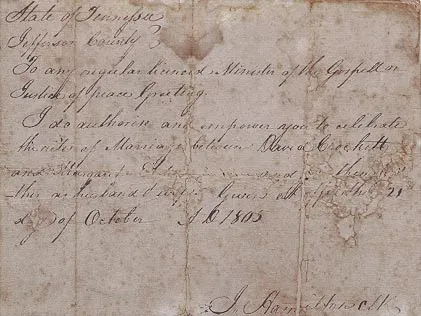 State of Tennessee
Jefferson County
To any regular licenced Minister of the Gospell or
Justice of peace Greeting.
I do authorise and empower you to celebrate
the rites of Marriage between David Crockett
and Margaret and
this as husband & wife Given the 21
day of October AD 1805
J Hamilton